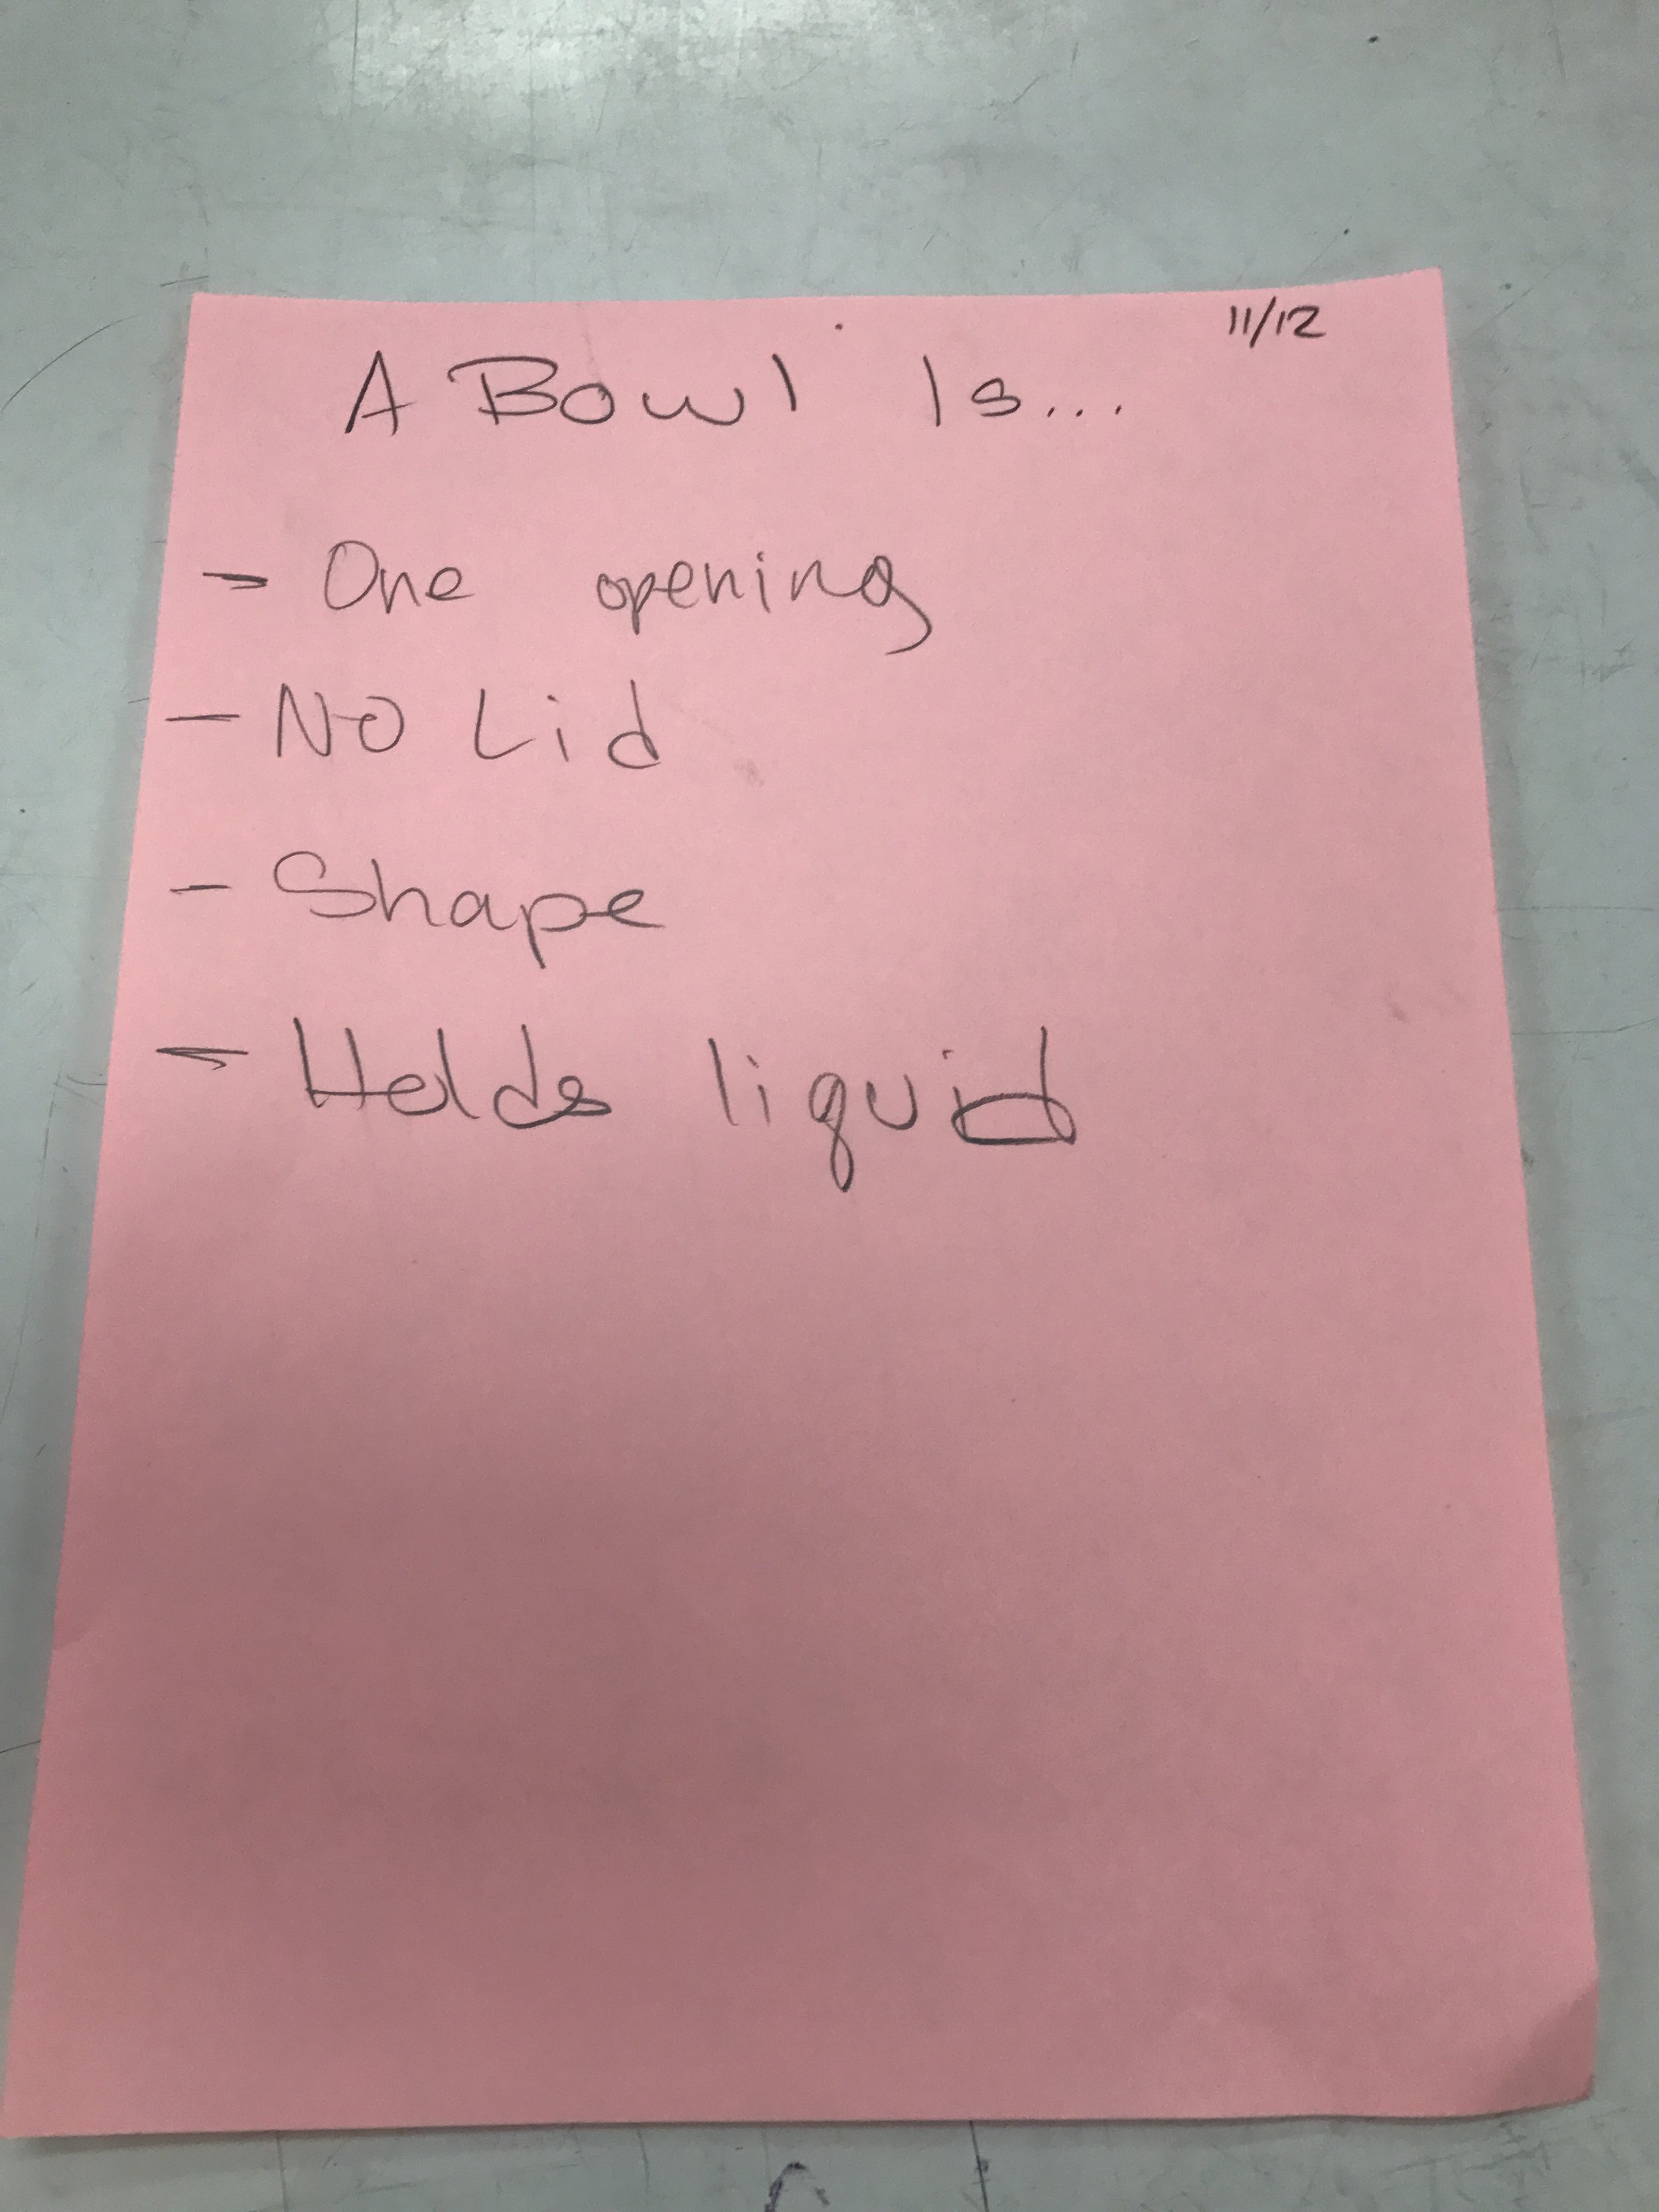 11/12
A Bowl Is...
- One opening
- NO Lid
- Shape
- Holds liquid